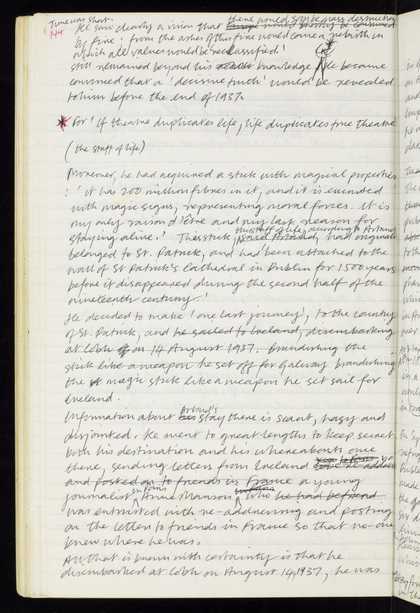 Time was short.
He saw clearly a vision that there would soon be mass destruction
by fire: from the ashes of this fire would come a rebirth in
which all values would be reclassified!
still remained beyond his knowledge. He became
convinced that a 'decisive truth' would be revealed
to him before the end of 1937.
* For 'If theatre duplicates life, life duplicates true theatre
(the staff of life)
Moreover, he had acquired a stick with magical properties
: 'it has 200 million fibres in it, and it is encrusted
with magic signs, representing moral forces. It is
my only raison d'être and my last reason for
staying alive.' The stick, this staff of life, according to Artaud, had originally
belonged to St. Patrick, and had been attached to the
wall of St Patrick's Cathedral in Dublin for 1500 years
before it disappeared during the second half of the
nineteenth century.'
He decided to make 'one last journey', to the country
of St. Patrick, and he sailed to Ireland, disembarking
at Cobh on 14 August 1937. Brandishing the
stick like a weapon he set off for Galway brandishing
the magic stick like a weapon he set sail for
Ireland.
Information about Artaud's stay there is scant, hazy and
disjointed. He went to great lengths to keep secret
both his destination and his whereabouts once
there, sending letters from Ireland
and posted on to friends in France a young
journalist in Paris Anne Manson who he had befriend
was entrusted with re-addressing and posting
on the letters to friends in France so that no-one
knew where he was.
All that is known with certainty is that he
disembarked at Cobh on August 14, 1937, he was